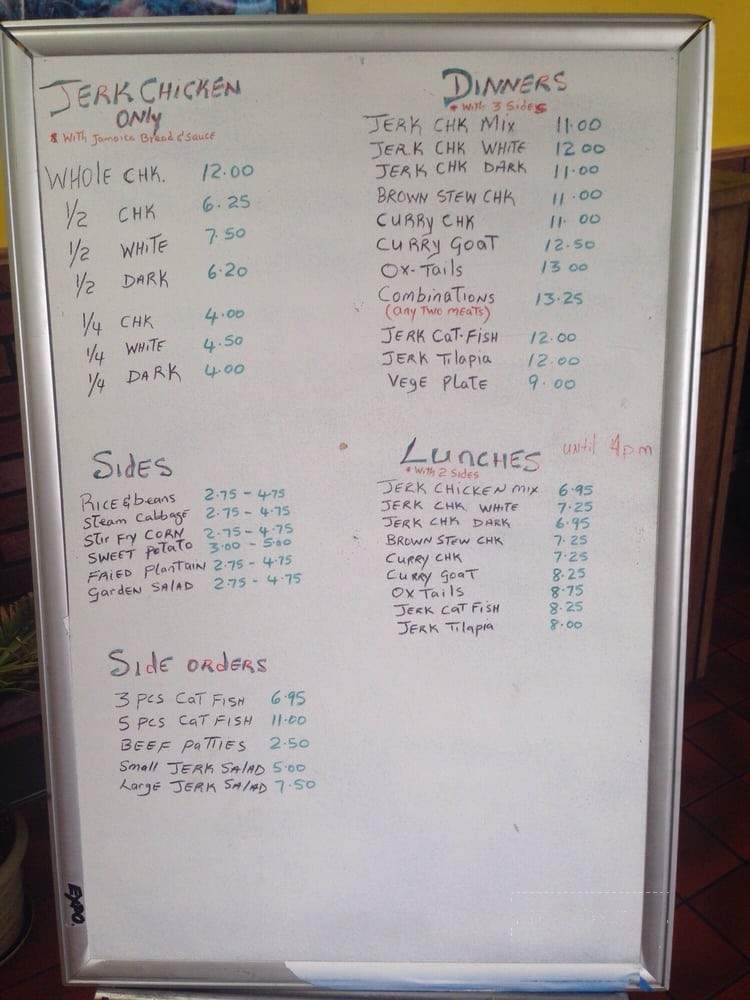 JERK CHICKEN
ONLY
* With Jamaica Bread & Sauce
WHOLE CHK. 12.00
1/2 CHK 6.25
1/2 WHITE 7.50
1/2 DARK 6.20
1/4 CHK 4.00
1/4 WHITE 4.50
1/4 DARK 4.00
SIDES
RICE & beans 2.75 - 4.75
STEAM CABBAGE 2.75 - 4.75
STIR FRY CORN 2.75 - 4.75
SWEET POTATO 3.00 - 5.00
FRIED PLANTAIN 2.75 - 4.75
GARDEN SALAD 2.75 - 4.75
SIDE ORDERS
3 PCS CAT FISH 6.95
5 PCS CAT FISH 11.00
BEEF PATTIES 2.50
Small JERK SALAD 5.00
Large JERK SALAD 7.50
DINNERS
* With 3 Sides
JERK CHK MIX 11.00
JERK CHK WHITE 12.00
JERK CHK DARK 11.00
BROWN STEW CHK 11.00
CURRY CHK 11.00
CURRY GOAT 12.50
OX-TAILS 13.00
COMBINATIONS 13.25
(ANY TWO MEATS)
JERK CAT-FISH 12.00
JERK TILAPIA 12.00
VEGE PLATE 9.00
LUNCHES until 4pm
* WITH 2 SIDES
JERK CHICKEN MIX 6.95
JERK CHK WHITE 7.25
JERK CHK DARK 6.95
BROWN STEW CHK 7.25
CURRY CHK 7.25
CURRY GOAT 8.25
OX TAILS 8.75
JERK CAT FISH 8.25
JERK TILAPIA 8.00
EXPO